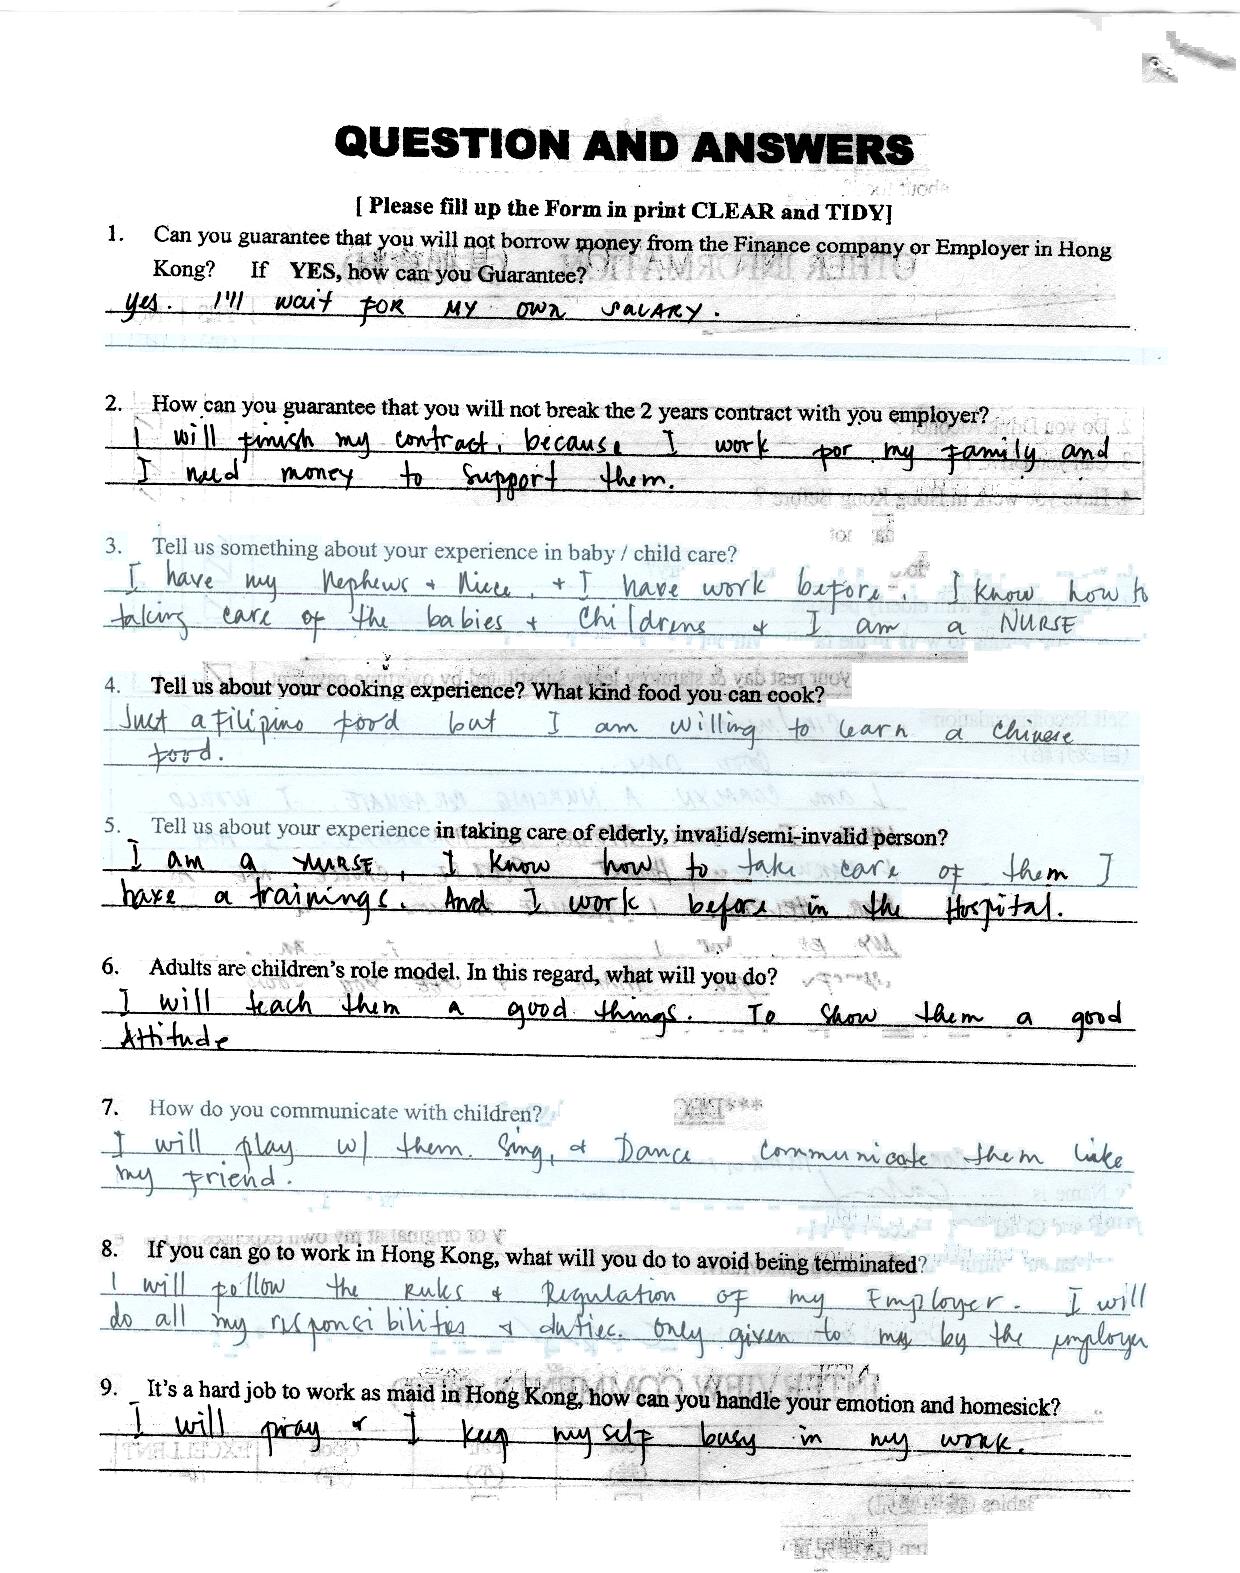 QUESTION AND ANSWERS
[ Please fill up the Form in print CLEAR and TIDY]
1. Can you guarantee that you will not borrow money from the Finance company or Employer in Hong
Kong? If YES, how can you Guarantee?
yes. I'll wait FOR MY OWN SALARY.
2. How can you guarantee that you will not break the 2 years contract with you employer?
I will finish my contract, because I work for my family and
I need money to support them.
3. Tell us something about your experience in baby / child care?
I have my Nephews + Niece, + I have work before. I know how to
taking care of the babies + Childrens + I am a NURSE
4. Tell us about your cooking experience? What kind food you can cook?
Just a Filipino food but I am willing to learn a Chinese
food.
5. Tell us about your experience in taking care of elderly, invalid/semi-invalid person?
I am a NURSE, I know how to take care of them I
have a trainings. And I work before in the Hospital.
6. Adults are children's role model. In this regard, what will you do?
I will teach them a good things. To show them a good
Attitude
7. How do you communicate with children?
I will play w/ them. Sing, + Dance communicate them like
my friend.
8. If you can go to work in Hong Kong, what will you do to avoid being terminated?
I will follow the Rules + Regulation of my Employer. I will
do all my responsibilities + duties. only given to me by the employer
9. It's a hard job to work as maid in Hong Kong, how can you handle your emotion and homesick?
I will pray + I keep my self busy in my work.